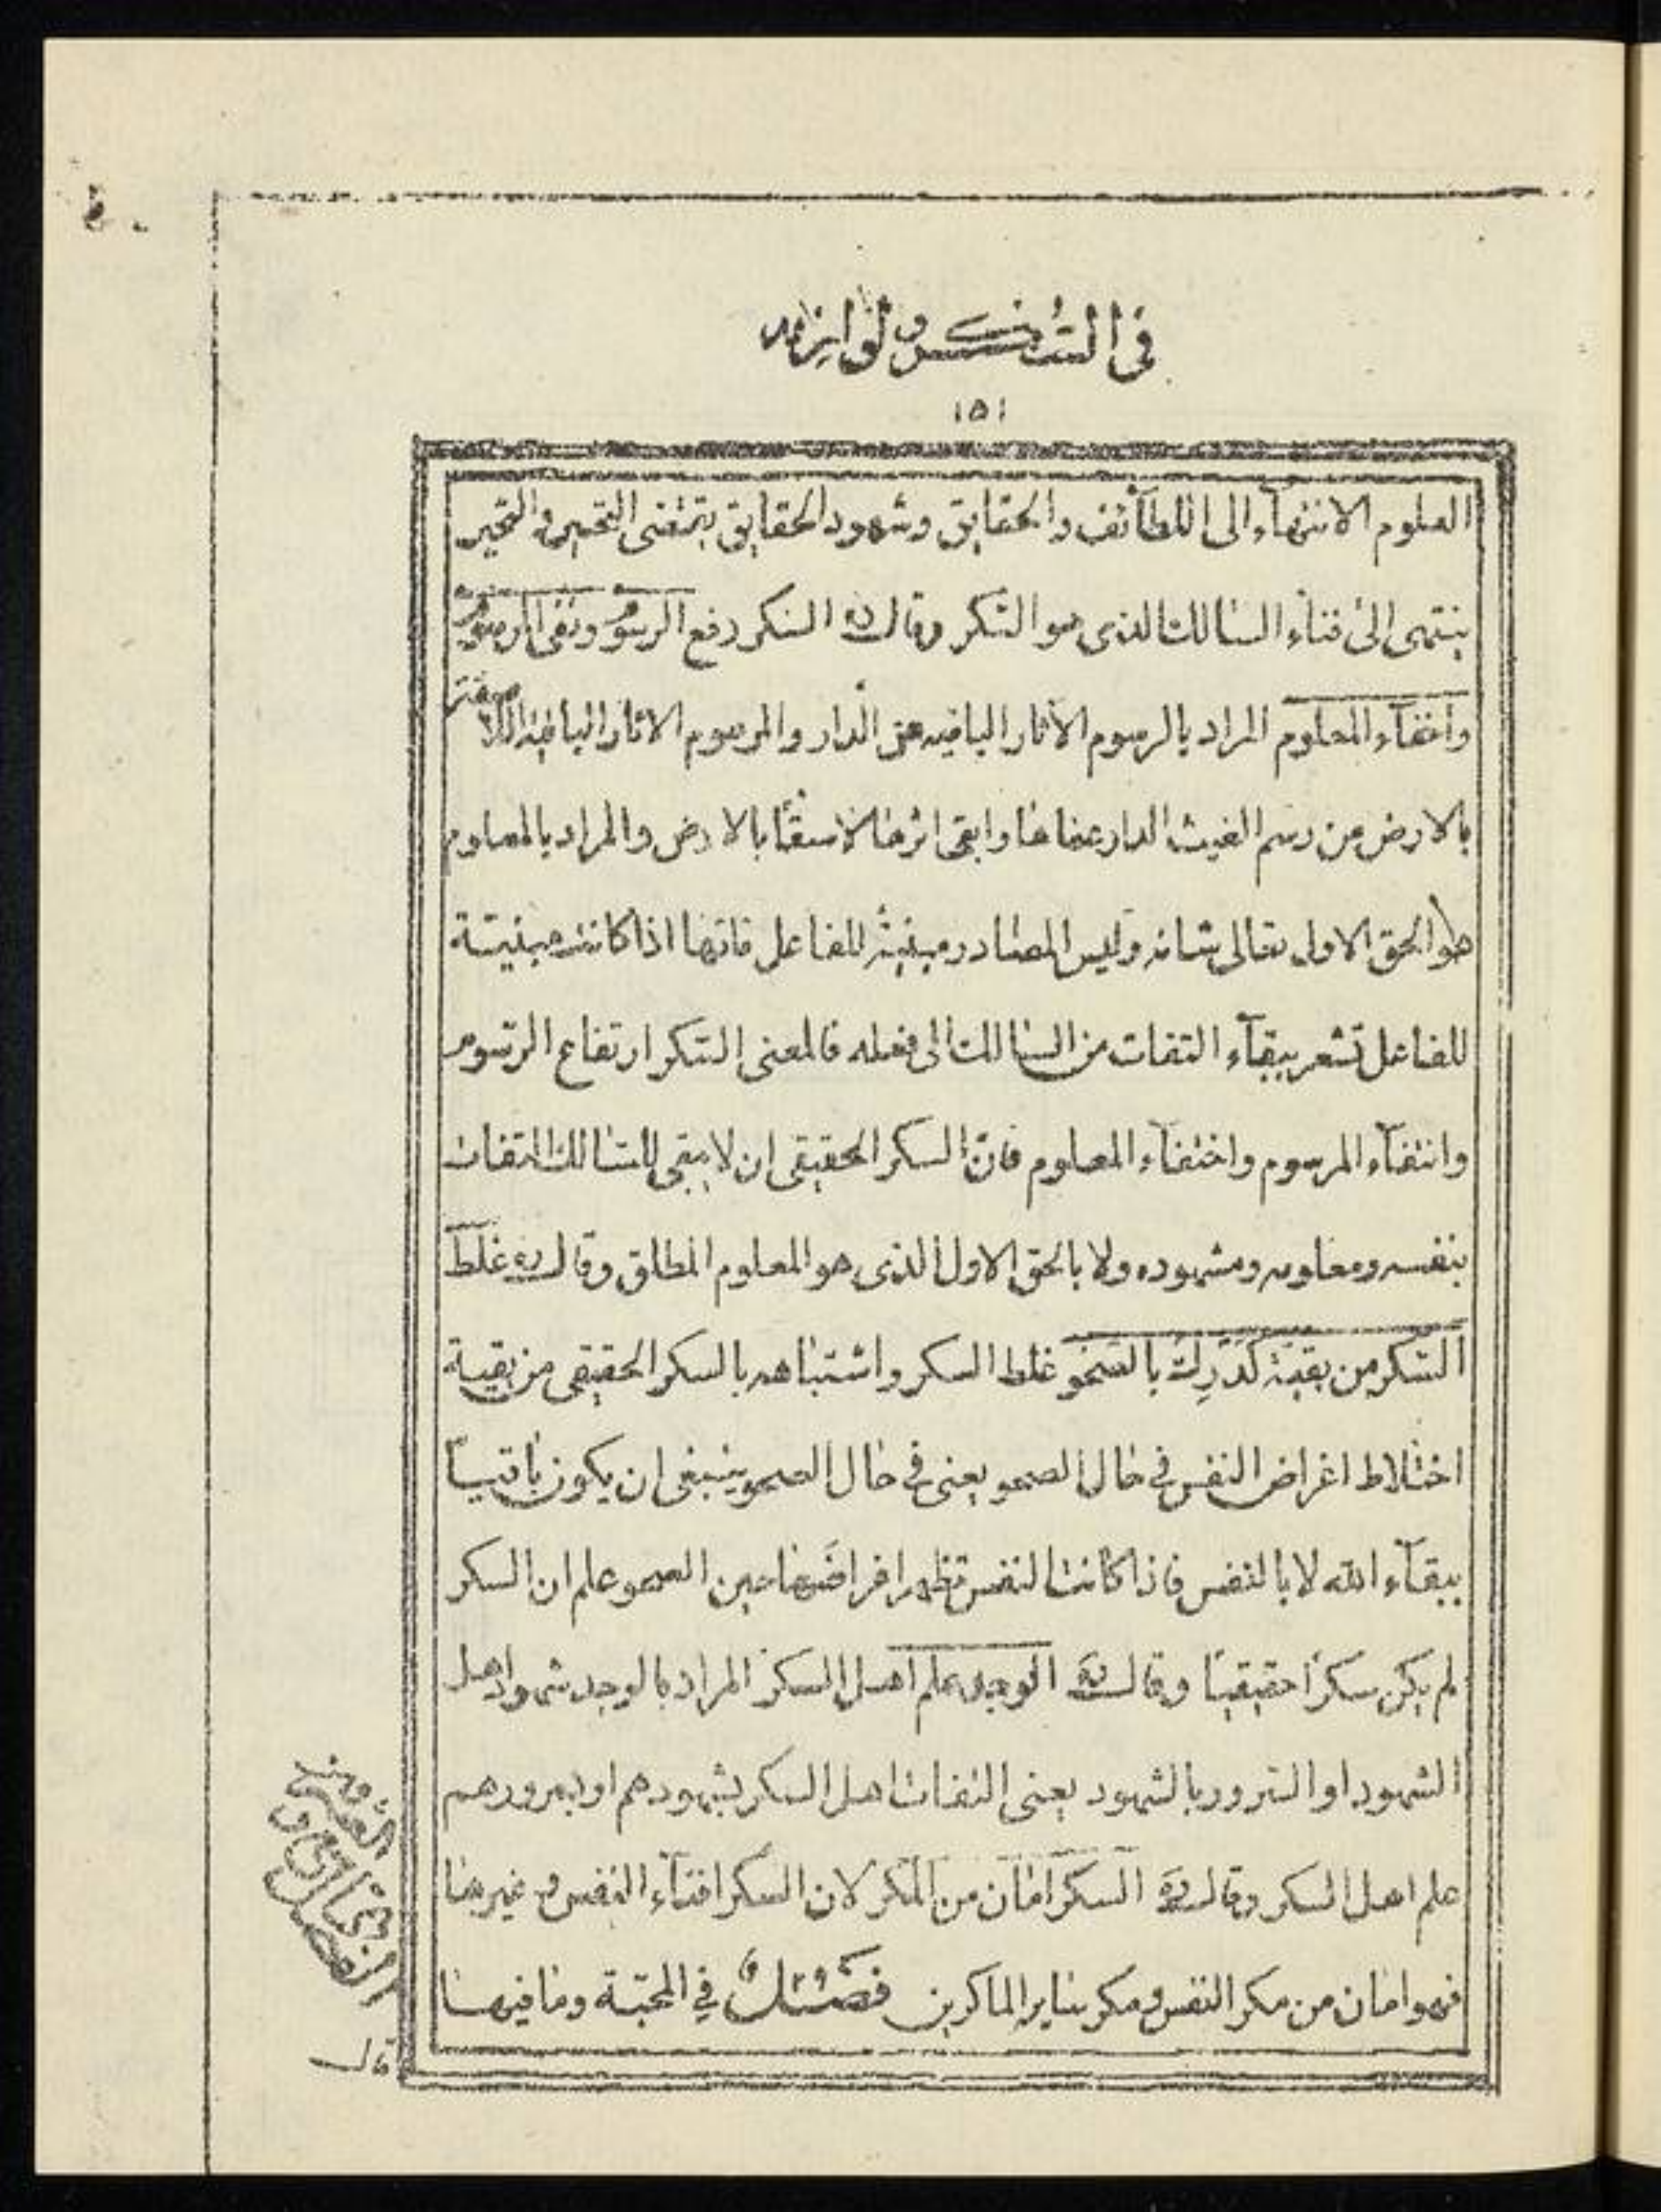 في السكر ولوازمه
١٥١
العلوم الانتهآء الى اللطآئف والحقايق وشهود الحقايق يقتضى التحير والتحير
ينتهى الى فناء السالك الذى هو السكر وقال ره السكر رفع الرسوم ونفى المرسوم
واختفآء المعلوم المراد بالرسوم الاثار الباقيه من الدار والمرسوم الاثار الباقية اللاصقة
بالارض من رسم الغيث الدار عفاها وابقى اثرها لاصقا بالارض والمراد بالمعلوم
هو الحق الاول تعالى شانه وليس المصادر مبنية للفاعل فانها اذا كانت مبنيتة
للفاعل تشعر ببقآء التفات من السالك الى فعله فالمعنى السكر ارتفاع الرسوم
وانتفآء المرسوم واختفآء المعلوم فان السكر الحقيقى ان لا يبقى للسالك التفات
بنفسه ومعلومه ومشهوده ولا بالحق الاول الذى هو المعلوم المطلق وقال ره غلط
السكر من بقية كدرت بالصحو غلط السكر واشتباهه بالسكر الحقيقى من بقية
اختلاط اغراض النفس في حال الصحو يعنى في حال الصحو ينبغى ان يكون باقيا
ببقآء الله لا بالنفس فاذا كانت النفس تظهر اغراضها حين الصحو علم ان السكر
لم يكن سكرا حقيقيا وقال ره الوجد علم اهل السكر المراد بالوجد شهود اهل
الشهود او السرور بالشهود يعنى التفات اهل السكر بشهودهم او بسرورهم
علم اهل السكر وقال ره السكر امان من المكر لان السكر افنآء النفس وغيرها
فهو امان من مكر النفس ومكر ساير الماكرين فصل في المحبة وما فيها
من العشق
و
قال